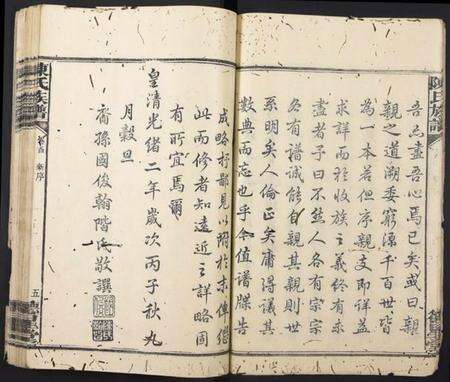 陳氏族譜
吾已盡吾心焉已矣或曰親
親之道溯委窮源千百世皆
為一本若但序親支即詳盖
求詳而於收族之義終有未
盡者予曰不然人各有宗宗
各有譜誠能自親其親則世
系明矣人倫正矣庸得議其
數典而忘也乎今值譜牒告
成略抒鄙見以附於末俾繼
此而修者知遠近之詳略固
有所宜焉爾
皇清光緒二年歲次丙子秋九
月穀旦
裔孫國俊翰階氏敬撰
陳氏族譜
序
五